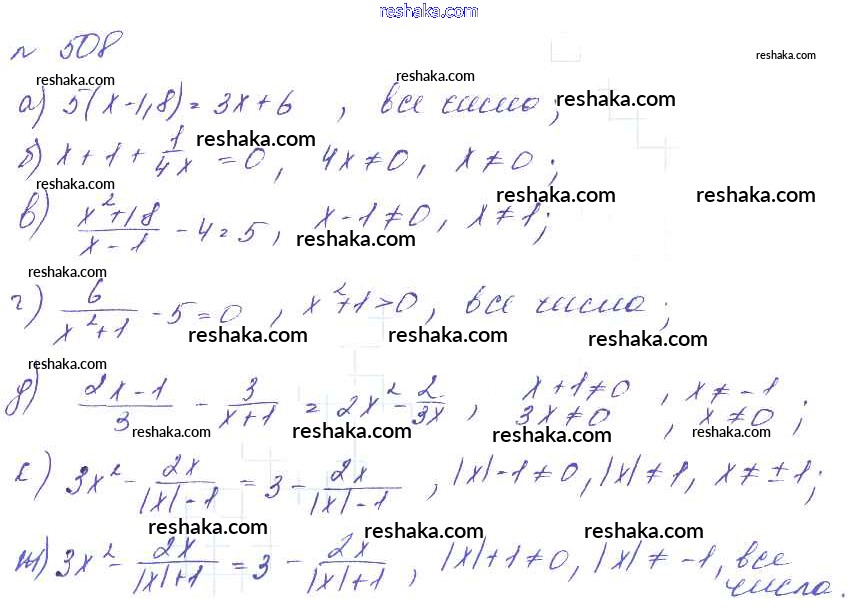 reshaka.com
№ 508
reshaka.com reshaka.com reshaka.com
а) 5(x-1,8) = 3x+6 , все числа; reshaka.com
reshaka.com
б) x + 1 + 1/4x = 0, 4x ≠ 0, x ≠ 0;
reshaka.com reshaka.com reshaka.com
в) x²+18/x-1 - 4 = 5, x-1 ≠ 0, x ≠ 1;
reshaka.com
reshaka.com
г) 6/x²+1 - 5 = 0, x²+1 > 0, все числа;
reshaka.com reshaka.com reshaka.com
reshaka.com
д) 2x-1/3 - 3/x+1 = 2x² - 2/3x, x+1 ≠ 0, x ≠ -1
3x ≠ 0, x ≠ 0;
reshaka.com reshaka.com reshaka.com reshaka.com
е) 3x² - 2x/|x|-1 = 3 - 2x/|x|-1, |x|-1 ≠ 0, |x| ≠ 1, x ≠ ±1;
reshaka.com reshaka.com reshaka.com
ж) 3x² - 2x/|x|+1 = 3 - 2x/|x|+1, |x|+1 ≠ 0, |x| ≠ -1, все
числа.